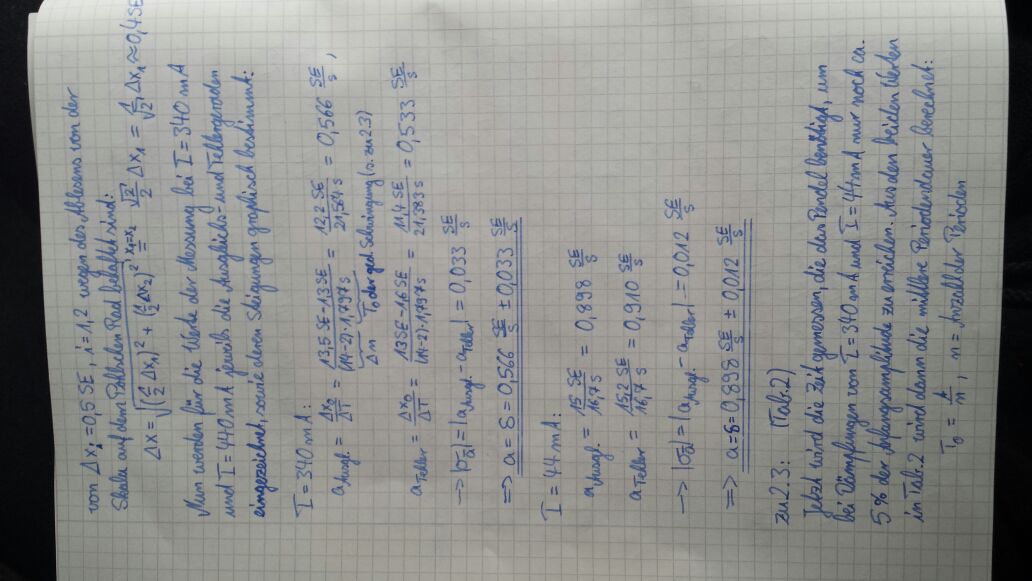 von Δxᵢ = 0,5 SE, i = 1, 2 wegen des Ablesens von der
Skala auf dem Pohlschen Rad behaftet sind:
Δx = √((½ Δx₁)² + (½ Δx₂)²) =^{x₁=x₂} √2/2 Δx₁ = 1/√2 Δx₁ ≈ 0,4 SE
Nun werden für die Werte der Messung bei I = 340 mA
und I = 440 mA jeweils die Ausgleichs- und Fehlergeraden
eingezeichnet, sowie deren Steigungen graphisch bestimmt:
I = 340 mA:
a_Ausgl. = Δx₀/ΔT = (13,5 SE - 1,3 SE)/((14-2)·1,797 s) = 12,2 SE/21,564 s = 0,566 SE/s,
Δn T₀ der ged. Schwingung (s. zu 2.3)
a_Fehler = Δx₀/ΔT = (13 SE - 1,6 SE)/((14-2)·1,797 s) = 11,4 SE/21,383 s = 0,533 SE/s
→ |σ_a| = |a_Ausgl. - a_Fehler| = 0,033 SE/s
=> a = δ = 0,566 SE/s ± 0,033 SE/s
I = 44 mA:
a_Ausgl. = 15 SE/16,7 s = 0,898 SE/s
a_Fehler = 15,2 SE/16,7 s = 0,910 SE/s
→ |σ_a| = |a_Ausgl. - a_Fehler| = 0,012 SE/s
=> a = δ = 0,898 SE/s ± 0,012 SE/s
zu 2.3: (Tab. 2)
Jetzt wird die Zeit gemessen, die das Pendel benötigt, um
bei Dämpfungen von I = 340 mA und I = 44 mA nur noch ca.
5% der Anfangsamplitude zu erreichen. Aus den beiden Werten
in Tab. 2 wird dann die mittlere Periodendauer berechnet:
T₀ = t/n, n = Anzahl der Perioden